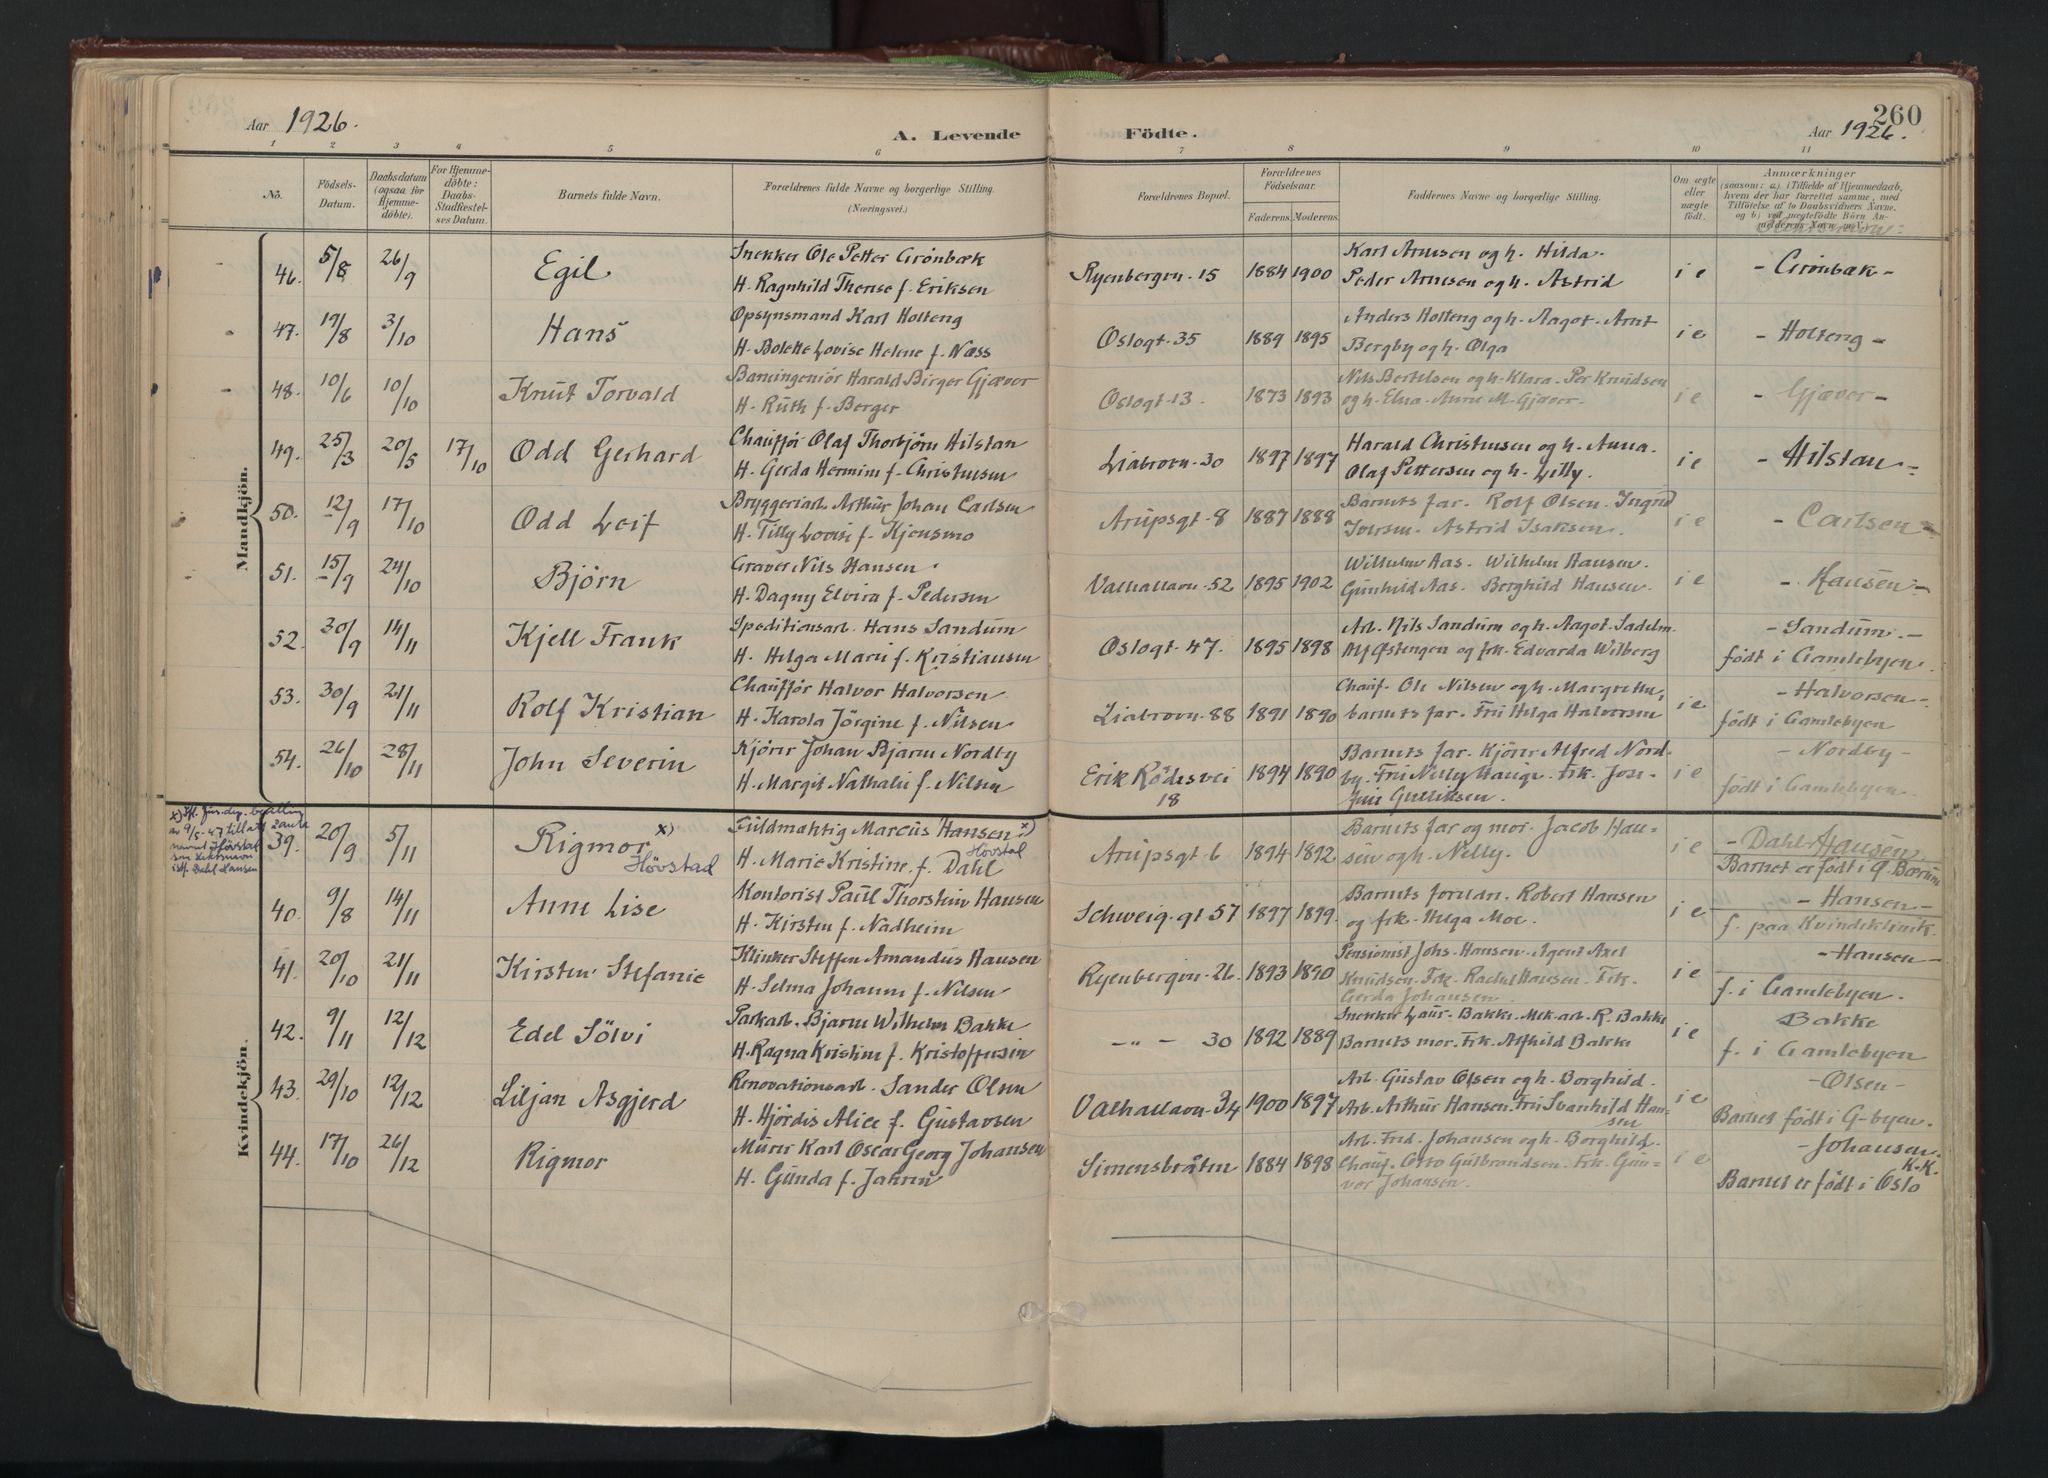 260
Aar 1926.
A. Levende Födte.
Aar 1926.
1 2 3 4 5 6 7 8 9 10 11
No.
Födsels-Datum.
Daabsdatum (ogsaa for Hjemmedöbte).
For Hjemmedöbte: Daabs-Stadfæstelses Datum.
Barnets fulde Navn.
Forældrenes fulde Navne og borgerlige Stilling.
(Næringsvei.)
Forældrenes Bopæl.
Forældrenes Födselsaar.
Faderens. Moderens.
Faddernes Navne og borgerlige Stilling.
Om ægte eller uægte födt.
Anmærkninger
(saasom: a) i Tilfælde af Hjemmedaab, hvem der har forrettet samme, med Tilföielse af to Daabsvidners Navne, og b) ved uegtefödte Börn Anmelderens Navn m.V.)
Mandkjön.
46. 5/8 26/9 Egil Snekker Ole Petter Grönbæk Ryenbergvn. 15 1884 1900 Karl Arnesen og h. Hilda. i e - Grönbæk -
H. Ragnhild Therese f. Eriksen Peder Arnesen og h. Astrid
47. 19/8 3/10 Hans Opsynsmand Karl Holteng Oslogt. 35 1889 1895 Anders Holteng og h. Aagot. Arnt i e - Holteng -
H. Bolette Lovise Helene f. Næss Bergby og h. Olga
48. 10/6 10/10 Knut Torvald Barningeniör Harald Birger Gjæver Oslogt. 13. 1873 1893 Nils Bertelsen og h. Klara. Per Knudsen i e - Gjæver -
H. Ruth f. Berger og h. Elna. Anne M. Gjæver.
49. 25/3 20/5 17/10 Odd Gerhard Chaufför Olaf Thorbjörn Hilstan Liabrovn. 30 1897 1897 Harald Christensen og h. Anna. i e - Hilstan -
H. Gerda Hermine f. Christensen Olaf Pettersen og h. Lilly.
50. 12/9 17/10 Odd Leif Bryggeriarb. Arthur Johan Carlsen Arupsgt. 8 1887 1888 Barnets far. Rolf Olsen. Ingrid i e - Carlsen -
H. Tilly Lovise f. Kjensmo Iversen. Astrid Isaksen.
51. 15/9 24/10 Björn Graver Nils Hansen. Valhallavn. 52 1895 1902 Wilhelm Aas. Wilhelm Hansen. i e - Hansen -
H. Dagny Elvira f. Pedersen Gunhild Aas. Berghild Hansen.
52. 30/9 14/11 Kjell Frank Speditionsarb. Hans Sandum Oslogt. 47. 1895 1898 Arb. Nils Sandum og h. Aagot. Sadelm. i e - Sandum. -
H. Helga Marie f. Kristiansen Alf Østengen og frk. Edvarda Wilberg födt i Gamlebyen.
53. 30/9 21/11 Rolf Kristian Chaufför Halvor Halvorsen Liabrovn. 88 1891 1890 Chauf. Ole Nilsen og h. Margrethe, i e - Halvorsen -
H. Karola Jörgine f. Nilsen barnets far. Fru Helga Halvorsen födt i Gamlebyen
54. 26/10 28/11 John Severin Kjörer Johan Bjarne Nordby Erik Rödesvei 18 1894 1890 Barnets far. Kjörer Alfred Nord- i e - Nordby -
H. Margit Nathalie f. Nilsen by. Fru Nelly Hauge. Frk. Jose- födt i Gamlebyen.
fine Gulliksen.
Kvindekjön.
x) Ifl. Jus. dep. bevilling
av 9/5-47 tillatt
navnet Hövstad
som slektsnavn
istf. Dahl Hansen
39. 20/9 5/11 Rigmor x) Fuldmaktig Marcus Hansen x) Arupsgt. 6 1894 1892 Barnets far og mor. Jacob Han- i e - Dahl-Hansen.
Hövstad Hövstad
H. Marie Kristine f. Dahl sen og h. Nelly. Barnet er födt i Ø. Bærum
40. 9/8 14/11 Anne Lise Kontorist Paul Thorstein Hansen Schweig. gt 57 1897 1899. Barnets foreldre. Robert Hansen i e - Hansen -
H. Kirsten f. Nadheim og frk. Helga Moe. f. paa Kvindeklinik.
41. 20/10 21/11 Kirsten Stefanie Klinker Steffen Amandus Hansen Ryenbergvn. 26. 1893 1890 Pensionist Johs. Hansen. Agent Axel i e - Hansen -
H. Selma Johanne f. Nilsen Knudsen. Frk. Rachel Hansen. Frk. f. i Gamlebyen.
Gerda Johansen.
42. 9/11 12/12 Edel Sölvi Parkarb. Bjarne Wilhelm Bakke -"- 30 1892 1889 Snekker Laur. Bakke. Mek. arb. R. Bakke i e Bakke
H. Ragna Kristine f. Kristoffersen Barnets mor. Frk. Alfhild Bakke f. i Gamlebyen
43. 29/10 12/12 Liljan Asgjerd Renovationsarb. Sander Olsen Valhallavn. 34 1900 1897 Arb. Gustav Olsen og h. Borghild. i e - Olsen -
H. Hjördis Alice f. Gustavsen Arb. Arthur Hansen. Fru Svanhild Han- Barnet födt i G-byen.
sen
44. 17/10 26/12 Rigmor Murer Karl Oscar Georg Johansen Simensbråten 1884 1898 Arb. Fred. Johansen og h. Borghild. i e - Johansen.
H. Gunda f. Jahren Chauf. Otto Gulbrandsen. Frk. Gun- K.K.
vor Johansen. Barnet er födt i Oslo